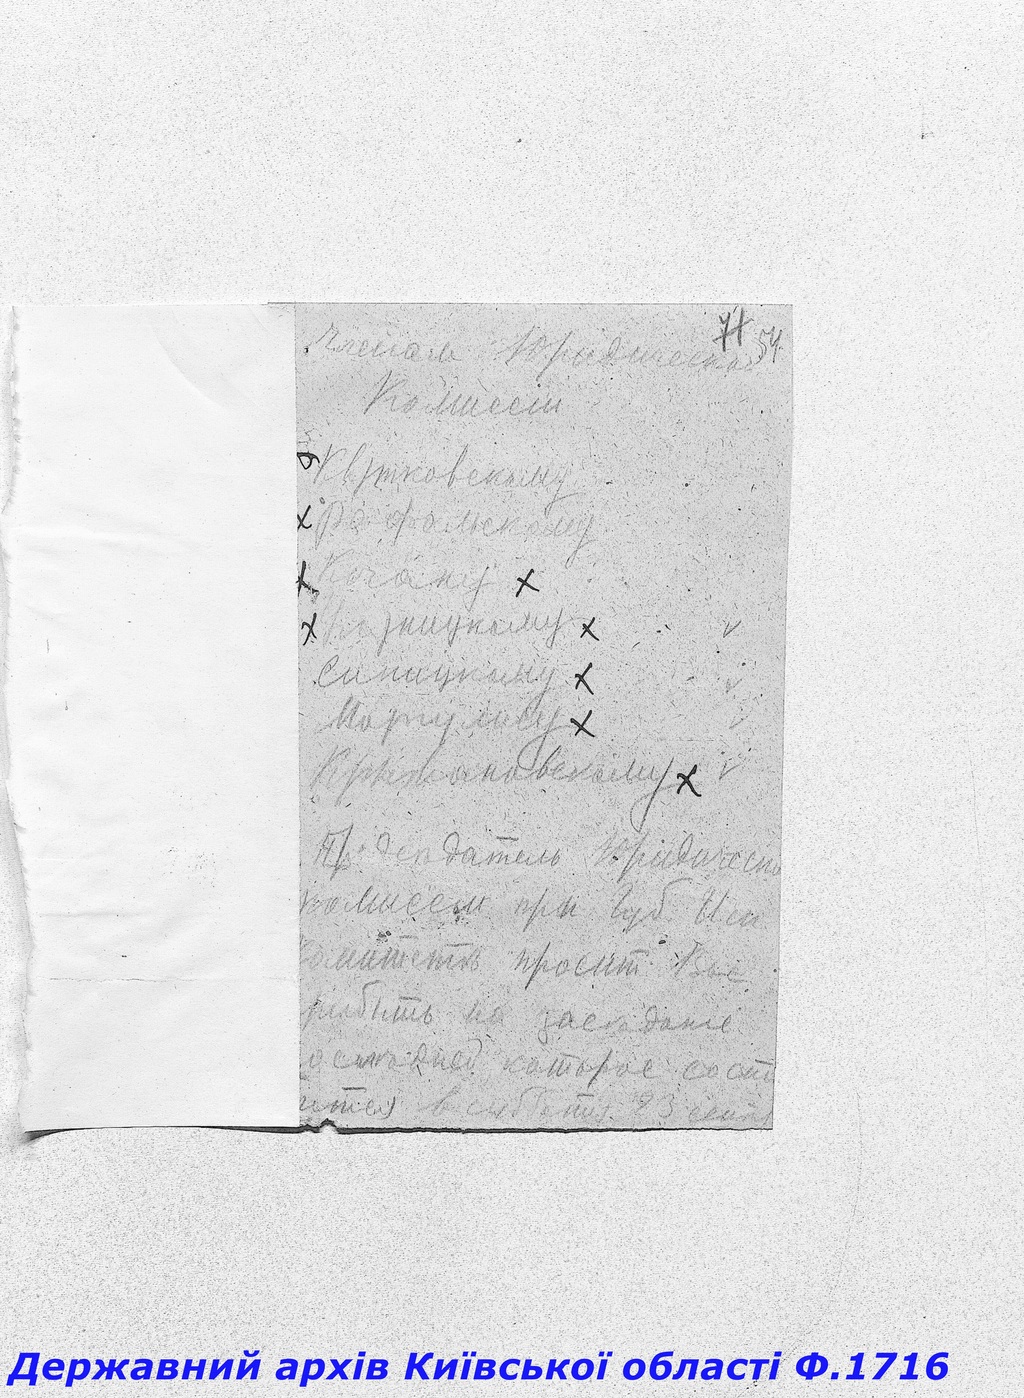 71 54
Членам Юридической
Комиссии
Квятковскому
Рафальскому
Когану x
x
Синицкому x
Маргулису x
Кржановскому x
Председатель Юридическо
комиссии при Губ Исп
комитете просит Вас
прибыть на заседание
которое состо
ится в субботу 23 сент
Державний архів Київської області Ф.1716